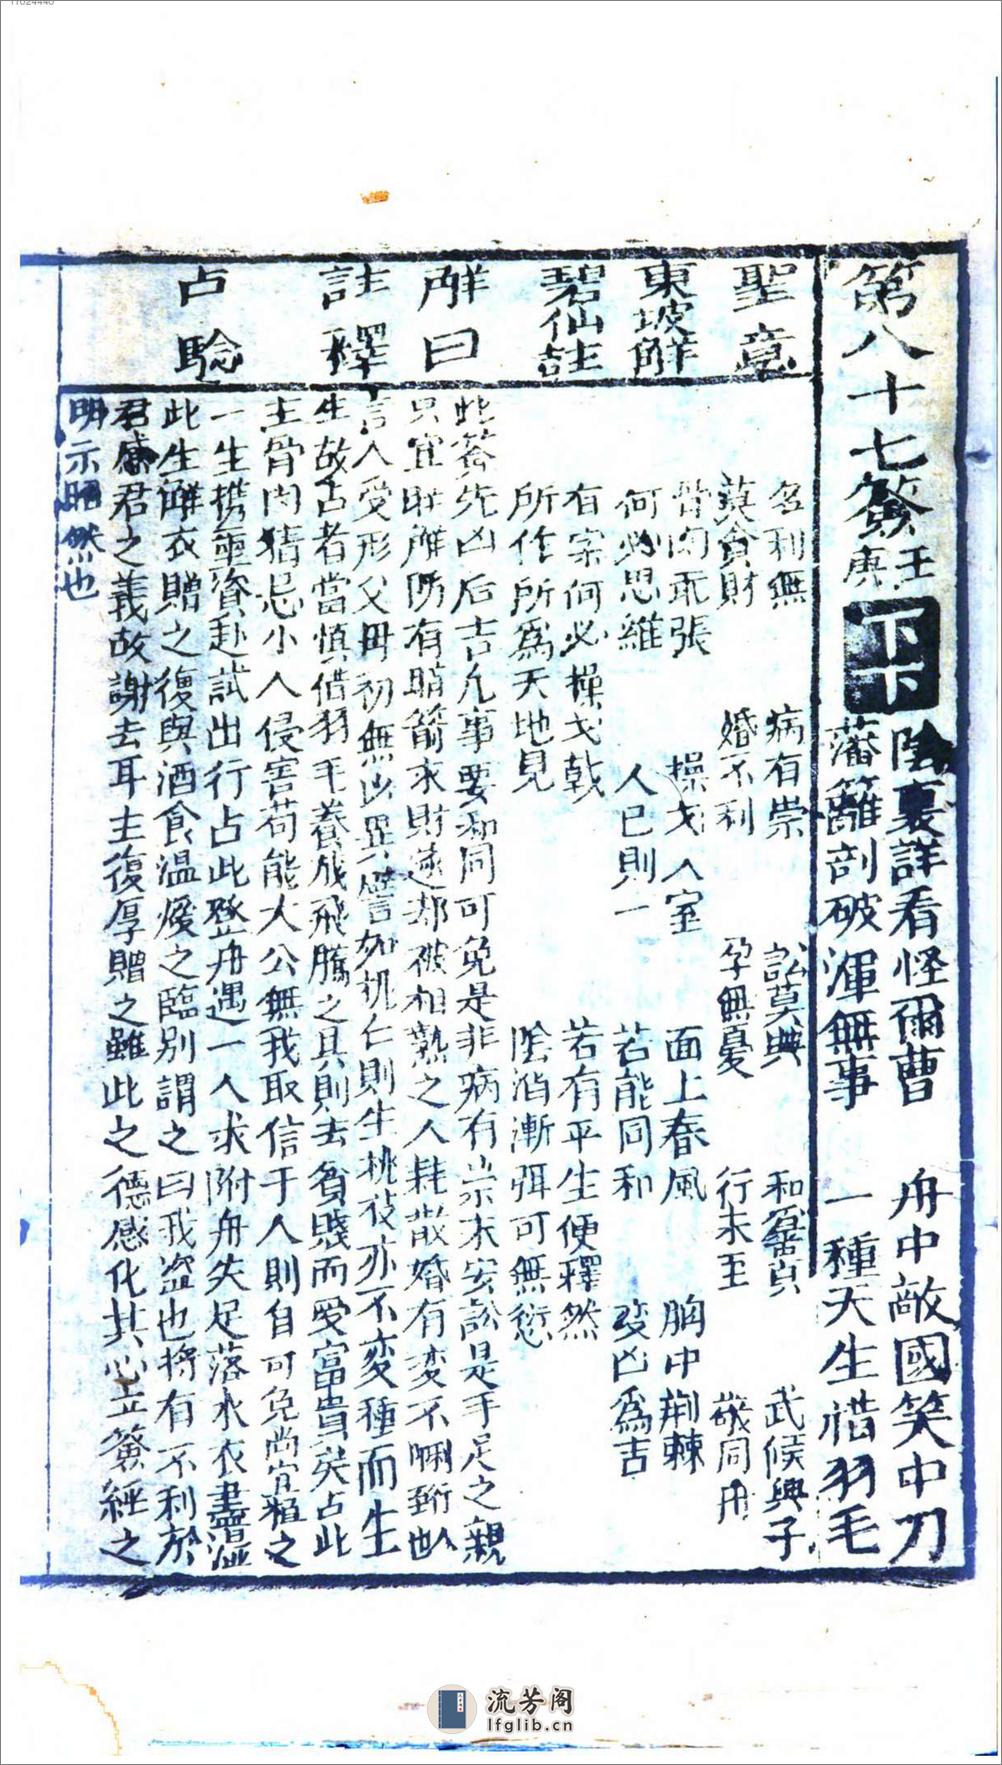 11024440
第八十七簽 庚壬 下下
陰裏詳看怪爾曹 舟中敵國笑中刀
藩籬剖破渾無事 一種天生惜羽毛
聖意
名利無 病有崇 訟莫興 和為貞 武候與子
莫貪財 婚不利 孕無憂 行未至 幾同舟
東坡解
骨肉乖張 操戈入室 面上春風 胸中荆棘
何必思維 人已則一 若能同和 变凶為吉
碧仙註
有宗何必操戈戟 若有平生便釋然
所作所為天地見 陰消漸弭可無愆
解曰
此簽先凶后吉凢事要和同可免是非病有崇未安訟是手足之親
只宜联雕防有暗箭求財遂却被相熟之人耗散婚有变不睭
註釋
言人受形父毋初無少異譬如桃仁則生桃枝亦不变種而生
生故占者當慎借羽毛養成飛騰之具則去貧賤而爱富貴矣占此
主骨肉猜忌小人侵害苟能大公無我取信于人則自可免尚宜植之
占驗
一生携重資赴試出行占此登舟遇一人求附舟失足落水衣盡濕
此生解衣贈之復與酒食温煖之臨别謂之曰我盗也將有不利於
君感君之義故謝去耳主復厚贈之雖此之德感化其心立簽經之
明示昭然也
流芳阁
lfglib.cn